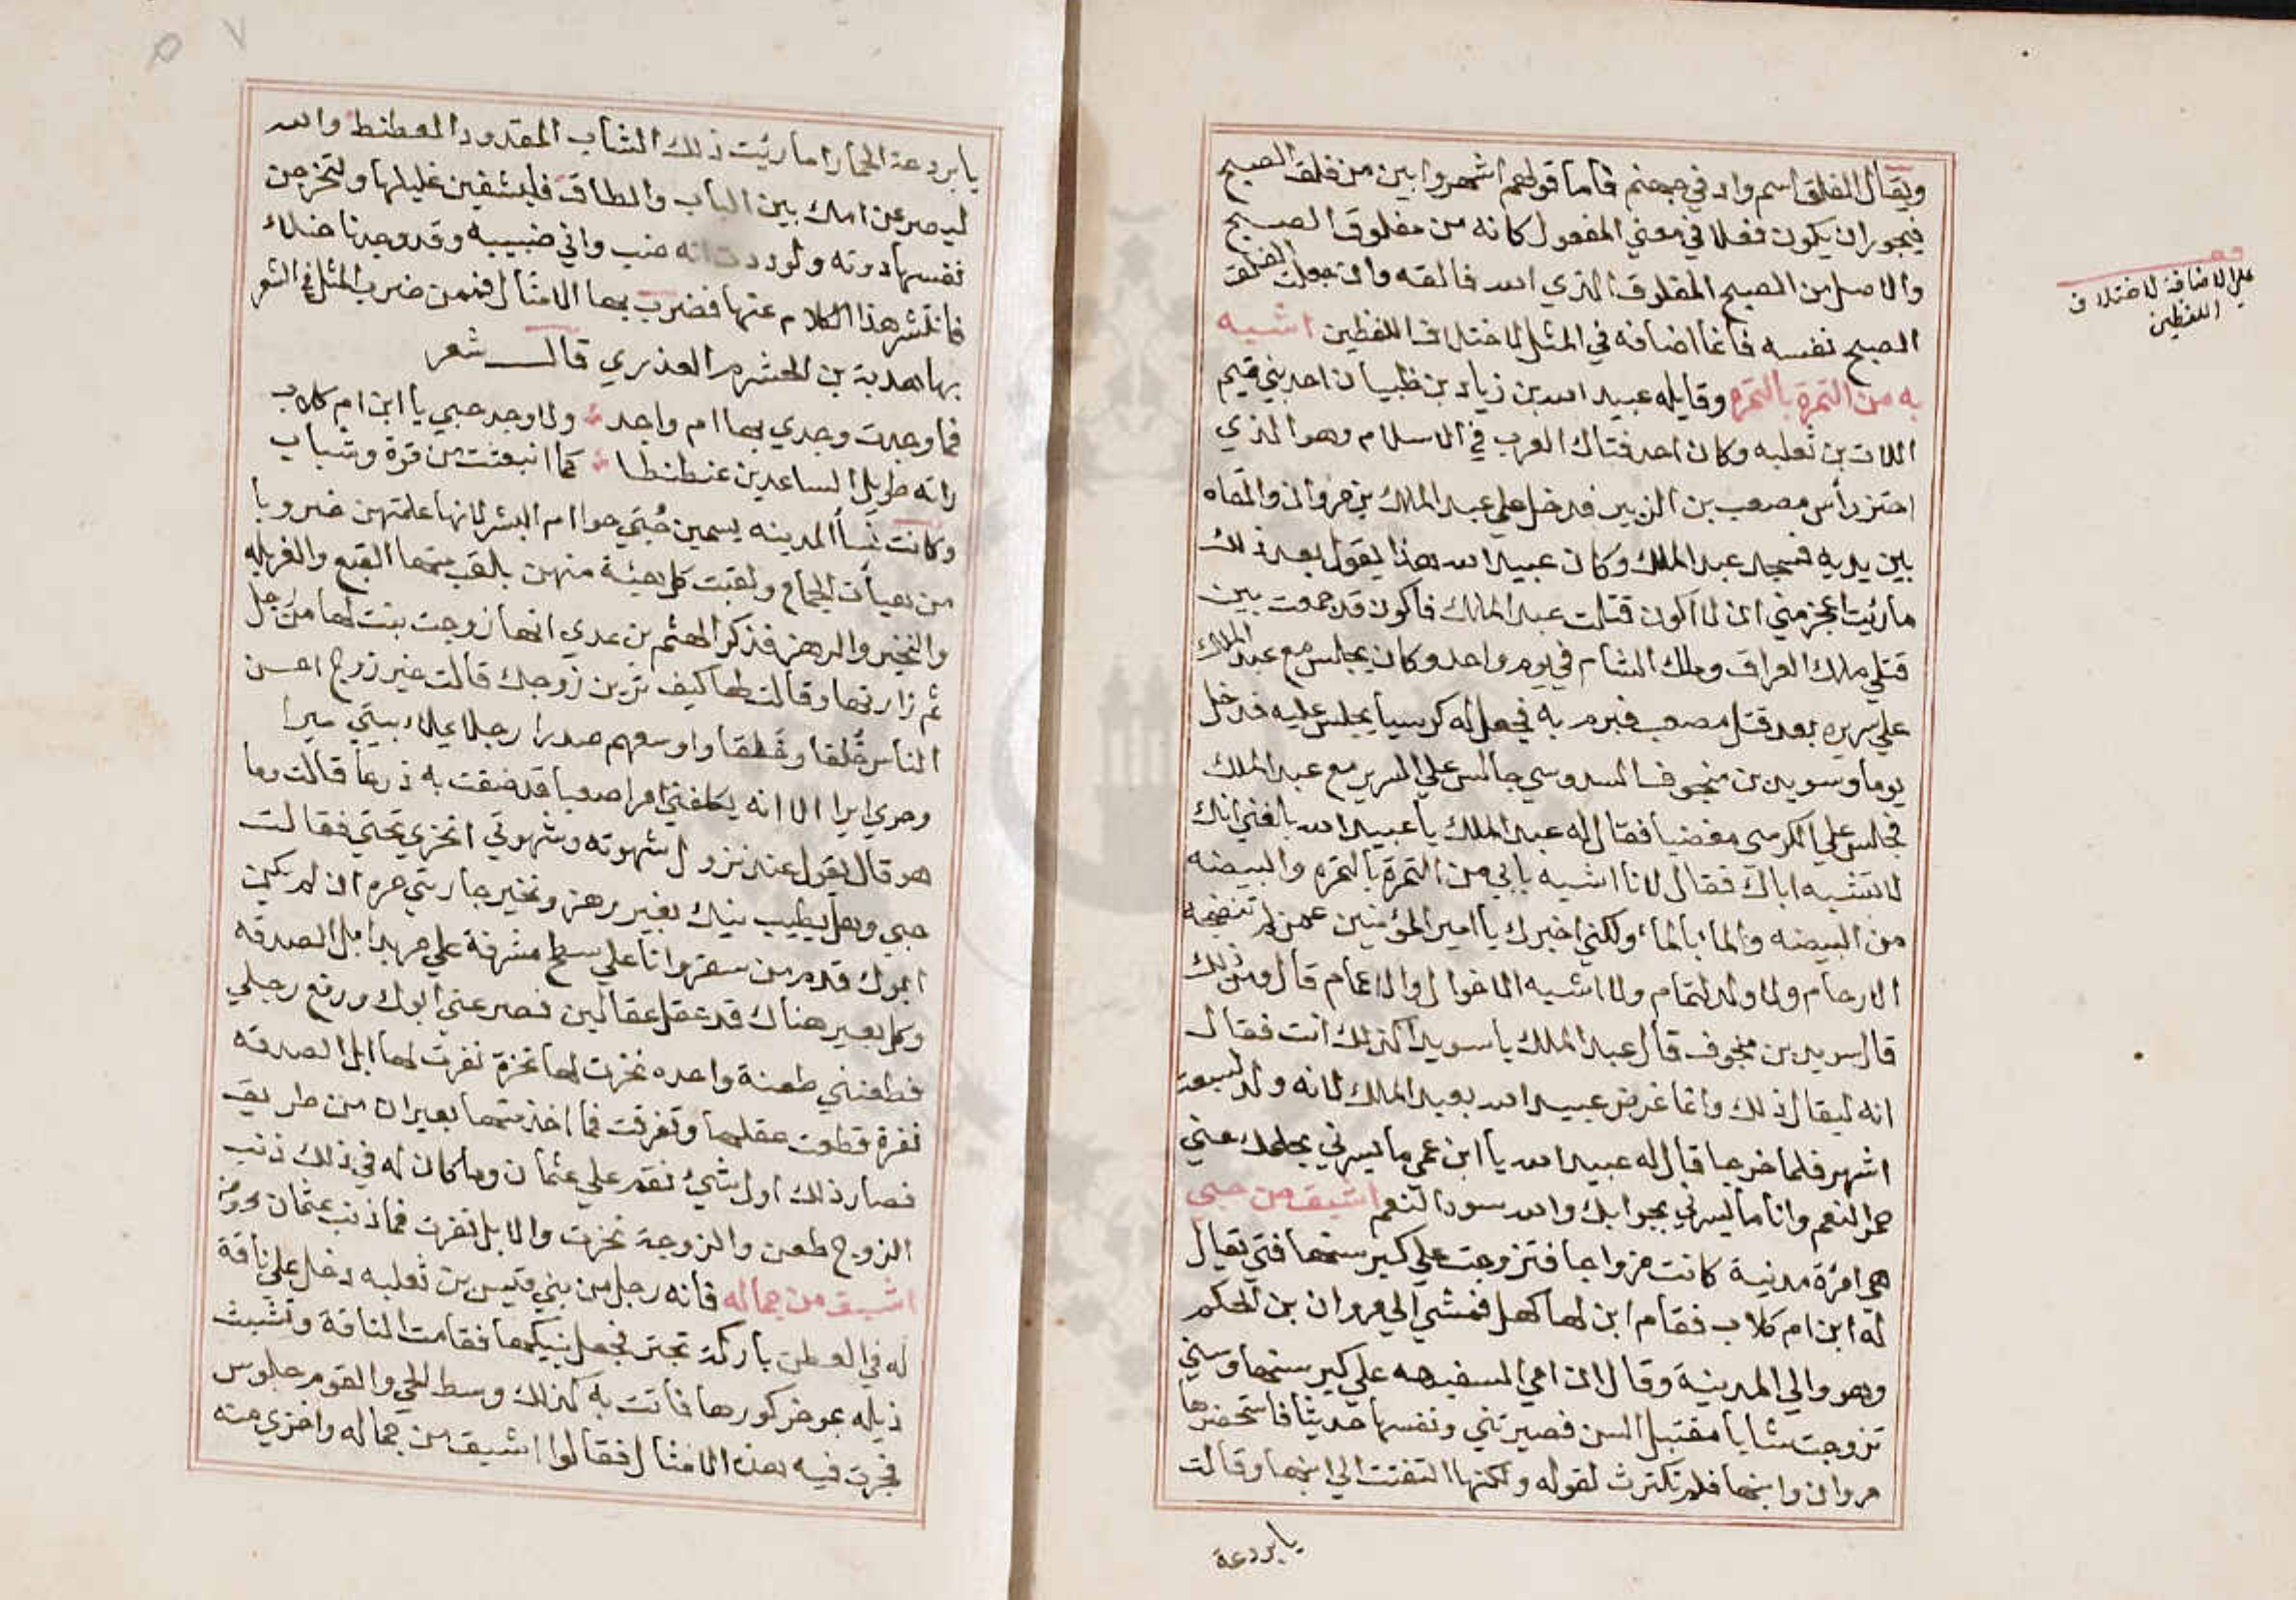 ويقال الفلق اسم واد في جهنم فاما قولهم اشهر وابين من فلق الصبح
فيجوز ان يكون فعلا في معني المفعول كانه من مفلوق الصبح
والاصل من الصبح المفلوق الذي الله فالقه وان جعلت الفلق
الصبح نفسه فانما اضافه في المثل لاختلاف اللفظين اشبه
به من التمرة بالتمره وقايله عبيد الله بن زياد بن ظبيان احد بني تيم
اللات بن ثعلبه وكان احد فتاك العرب في الاسلام وهو الذي
احتز رأس مصعب بن الزبير فدخل علي عبد الملك بن مروان والقاه
بين يديه فسجد عبد الملك وكان عبيد الله هذا يقول بعد ذلك
ما رئيت اعجز مني ان لا اكون قتلت عبد الملك فاكون قد جمعت بين
قتلي ملك العراق وملك الشام في يوم واحد وكان يجلس مع عبد الملك
علي سريره بعد قتل مصعب فبرم به فجعل له كرسيا يجلس عليه فدخل
يوما وسويد بن منجوف السدوسي جالس علي السرير مع عبد الملك
فجلس علي الكرسي مغضبا فقال له عبد الملك يا عبيد الله بلغني انك
لا تشبه اباك فقال لانا اشبه بابي من التمرة بالتمره والبيضه
من البيضه والماء بالماء ولكني اخبرك يا امير المؤمنين عمن لم تنضجه
الارحام ولا ولد لتمام ولا اشبه الاخوال والاعمام قال ومن ذلك
قال سويد بن منجوف قال عبد الملك يا سويد اكذلك انت فقال
انه ليقال ذلك وانما عرض عبيد الله بعبد الملك لانه ولد لسبعة
اشهر فلما خرجا قال له عبيد الله يا ابن عمي ما يسرني بحلمك عني
حمر النعم وانا ما يسرني بجوابك والله سود النعم اشبق من حبي
هي امرءة مدنية كانت مزواجا فتزوجت علي كبر سنها فتي يقال
له ابن ام كلاب فقام ابن لها كهل فمشي الي مروان بن الحكم
وهو والي المدينة وقال ان امي السفيهه علي كبر سنها وسني
تزوجت شابا مقتبل السن فصيرتني ونفسها حديثا فاستحضرها
مروان وابنها فلم تكترث لقوله ولكنها التفتت الي ابنها وقالت
يا بردعة
علي الاضافة لاختلاف
اللفظين
يا بردعة الحمار اما رئيت ذلك الشاب المقدود العطنط والله
ليصرعن امك بين الباب والطاق فليشفين غليلها ولتخرجن
نفسها دونه ولوددت انه ضب واني ضبيبه وقد وجدنا خلاء
فانتشر هذا الكلام عنها فضرب بها الامثال فمن ضرب المثل في الشعر
بها هدبة بن الخشرم العذري قال شعر
فما وجدت وجدي بها ام واحد ولا وجد حبي يا ابن ام كلاب
راته طويل الساعدين عنطنطا كما انبعثت من قوة وشباب
وكانت نسأ المدينه يسمين حُبَّي حوا ام البشر لانها علمتهن ضروبا
من هيأت الجماع ولقبت كل هيئة منهن بلقب منها القبع والغربله
والنخير والرهز فذكر الهيثم بن عدي انها زوجت بنت لها من رجل
ثم زارتها وقالت لها كيف ترين زوجك قالت خير زوج احسن
الناس خُلقا وخَلقا واوسعهم صدرا رجلا يملاء بيتي خيرا
وحري ايرا الا انه يكلفني امرا صعبا قد ضقت به ذرعا قالت وما
هو قال يقول عند نزول شهوته وشهوتي انخزي تحتي فقالت
حبي وهل يطيب نيك بغير رهز ونخير جاريتي حره ان لم يكن
ابوك قدم من سفر وانا علي سطح مشرفة علي مربد ابل الصدقه
وكل بعير هناك قد عقل عقالين فصرعني ابوك ورفع رجلي
فطعنني طعنة واحده نخرت لها نخرة نفرت لها ابل الصدقه
نفرة قطعت عقلها وتفرقت فما اخذ منها بعيران من طريق
فصار ذلك اول شيء نقم علي عثمان وما كان له في ذلك ذنب
الزوج طعن والزوجة نخرت والابل نفرت فما ذنب عثمان
اشبق من جماله فانه رجل من بني قيس بن ثعلبه دخل علي ناقة
له في العطن باركة تجتر فجعل ينيكها فقامت الناقة وتشبث
ذيله بموخر كورها فاتت به كذلك وسط الحي والقوم جلوس
فجرت فيه هذه الامثال فقالوا اشبق من جماله واخزي منه